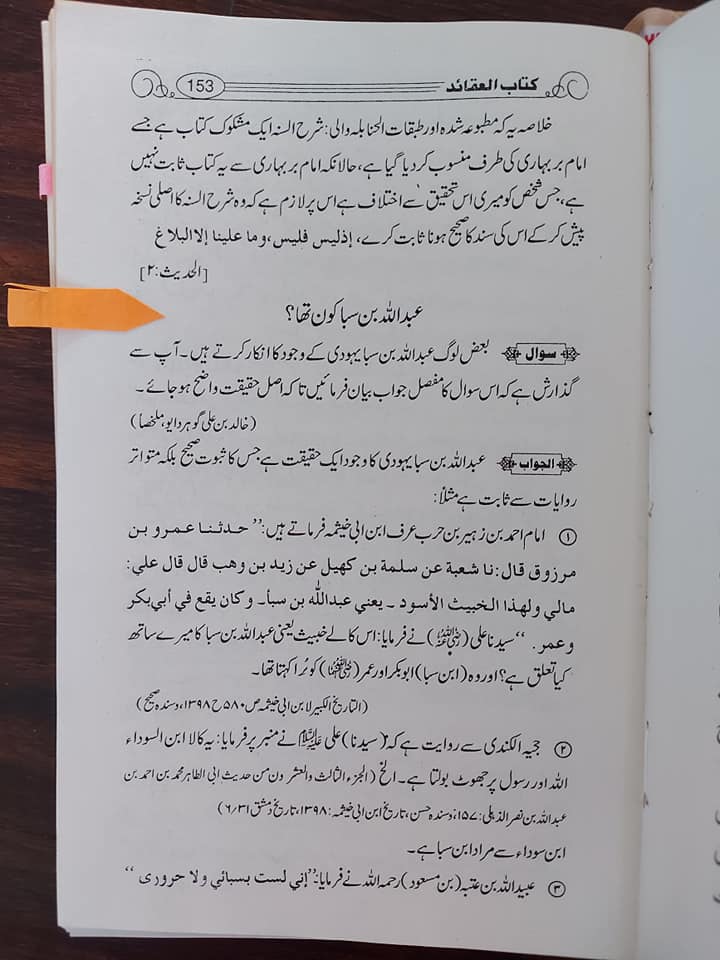 کتاب العقائد 153
خلاصہ یہ کہ مطبوعہ شدہ اور طبقات الحنابلہ والی: شرح السنہ ایک مشکوک کتاب ہے جسے
امام بربہاری کی طرف منسوب کر دیا گیا ہے، حالانکہ امام بربہاری سے یہ کتاب ثابت نہیں
ہے، جس شخص کو میری اس تحقیق سے اختلاف ہے اس پر لازم ہے کہ وہ شرح السنہ کا اصلی نسخہ
پیش کر کے اس کی سند کا صحیح ہونا ثابت کرے، إذلیس فلیس، وما علینا إلا البلاغ
[الحدیث:۲]
عبداللہ بن سبا کون تھا؟
سوال بعض لوگ عبداللہ بن سبا یہودی کے وجود کا انکار کرتے ہیں۔ آپ سے
گذارش ہے کہ اس سوال کا مفصل جواب بیان فرمائیں تاکہ اصل حقیقت واضح ہو جائے۔
(خالد بن علی گوہر دایو، ملخصاً)
الجواب عبداللہ بن سبا یہودی کا وجود ایک حقیقت ہے جس کا ثبوت صحیح بلکہ متواتر
روایات سے ثابت ہے مثلاً:
① امام احمد بن زہیر بن حرب عرف ابن ابی خیثمہ فرماتے ہیں: ”حدثنا عمرو بن
مرزوق قال: نا شعبة عن سلمة بن كهيل عن زيد بن وهب قال قال علي:
مالي ولهذا الخبيث الأسود ۔ يعني عبدالله بن سبأ۔ وكان يقع في أبي بكر
وعمر۔ “ سیدنا علی (رضی اللہ عنہ) نے فرمایا: اس کالے خبیث یعنی عبداللہ بن سبا کا میرے ساتھ
کیا تعلق ہے؟ اور وہ (ابن سبا) ابوبکر اور عمر (رضی اللہ عنہما) کو بُرا کہتا تھا۔
(التاریخ الکبیر لابن ابی خیثمہ ص ۵۸۰ ح ۱۳۹۸، وسندہ صحیح)
② حجیہ الکندی سے روایت ہے کہ (سیدنا) علی علیہ السلام نے منبر پر فرمایا: یہ کالا ابن السوداء
اللہ اور رسول پر جھوٹ بولتا ہے۔ الخ (الجزء الثالث والعشرون من حدیث ابی الطاہر محمد بن احمد بن
عبداللہ بن نصر الذہلی: ۱۵۷، وسندہ حسن، تاریخ ابن ابی خیثمہ: ۱۳۹۸، تاریخ دمشق ۶/۳۱)
ابن سوداء سے مراد ابن سبا ہے۔
③ عبیداللہ بن عتبہ (بن مسعود) رحمہ اللہ نے فرمایا: ”إني لست بسبائي ولا حروری “